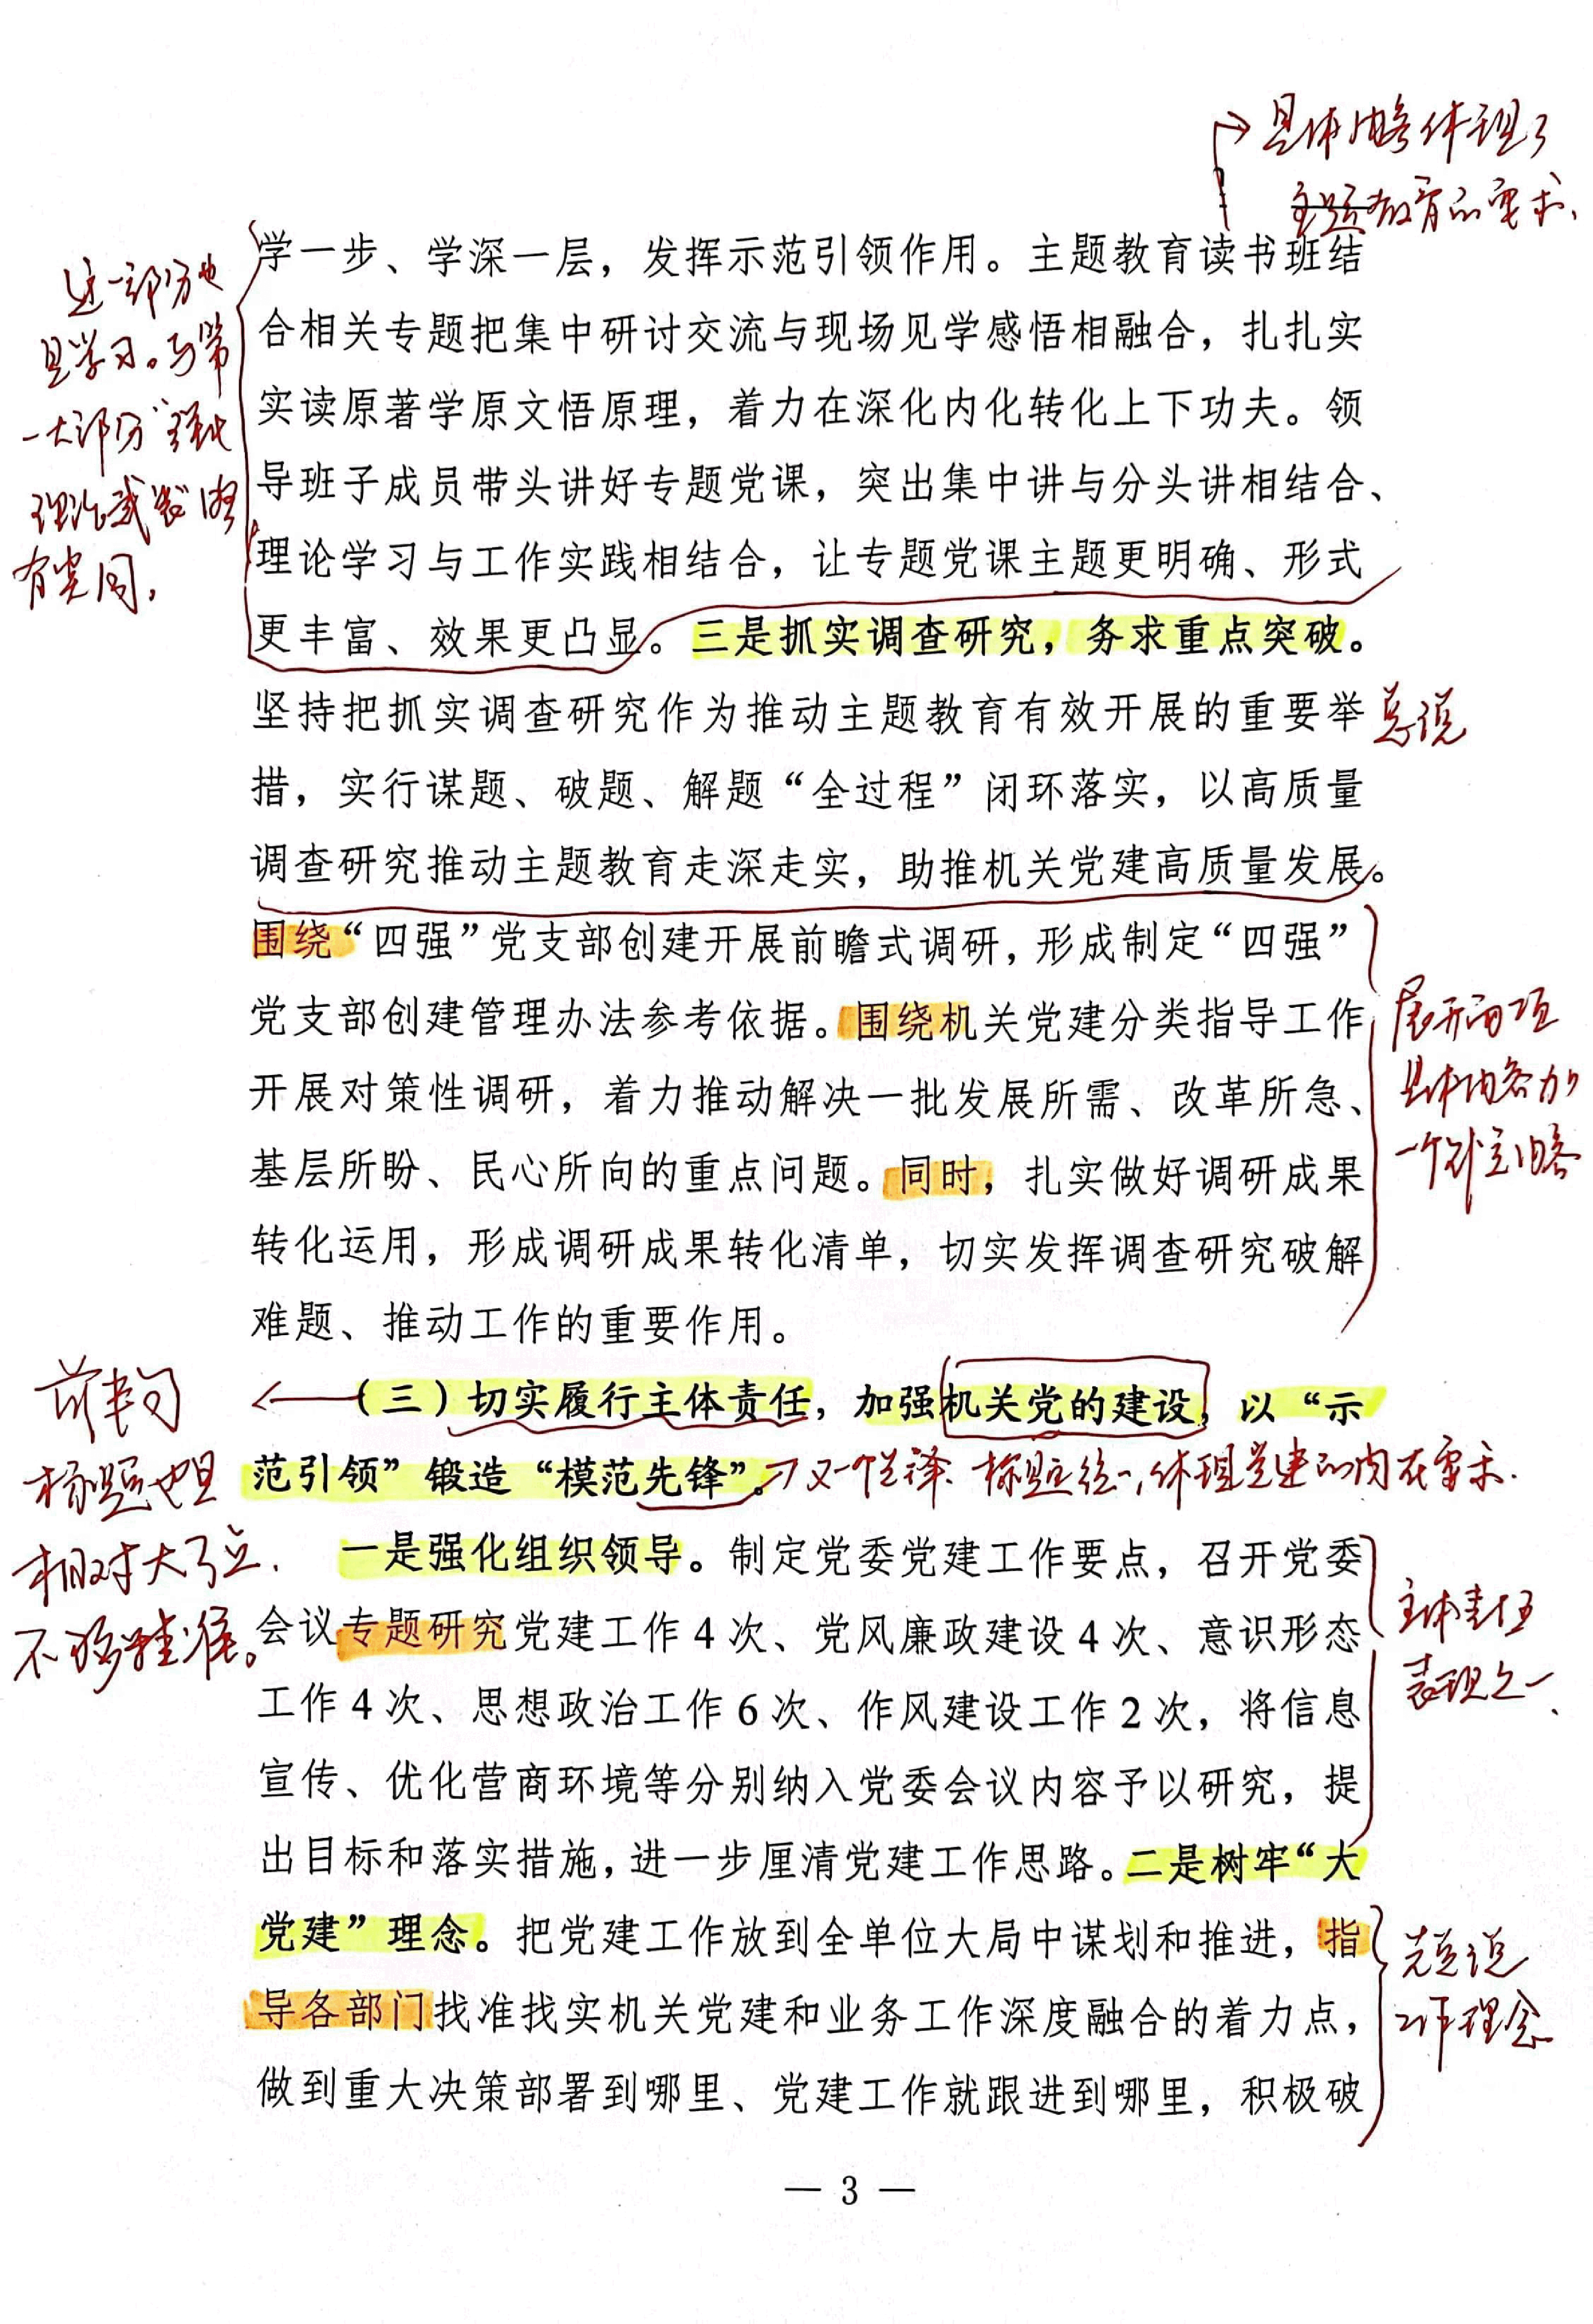 具体内容体现了
主题教育的要求、
学一步、学深一层，发挥示范引领作用。主题教育读书班结
合相关专题把集中研讨交流与现场见学感悟相融合，扎扎实
实读原著学原文悟原理，着力在深化内化转化上下功夫。领
导班子成员带头讲好专题党课，突出集中讲与分头讲相结合、
理论学习与工作实践相结合，让专题党课主题更明确、形式
更丰富、效果更凸显。三是抓实调查研究，务求重点突破。
这一部分也
是学习。与第
一大部分“强化
理论武装”内容
有雷同，
坚持把抓实调查研究作为推动主题教育有效开展的重要举
措，实行谋题、破题、解题“全过程”闭环落实，以高质量
调查研究推动主题教育走深走实，助推机关党建高质量发展。
总说
围绕“四强”党支部创建开展前瞻式调研，形成制定“四强”
党支部创建管理办法参考依据。围绕机关党建分类指导工作
开展对策性调研，着力推动解决一批发展所需、改革所急、
基层所盼、民心所向的重点问题。同时，扎实做好调研成果
转化运用，形成调研成果转化清单，切实发挥调查研究破解
难题、推动工作的重要作用。
展开两项
具体内容加
一个补充内容
（三）切实履行主体责任，加强机关党的建设，以“示
范引领”锻造“模范先锋”。
又一个先锋、标题统一，体现党建的内在要求.
前半句
标题也是
相对大了点.
不够精准。
一是强化组织领导。制定党委党建工作要点，召开党委
会议专题研究党建工作 4 次、党风廉政建设 4 次、意识形态
工作 4 次、思想政治工作 6 次、作风建设工作 2 次，将信息
宣传、优化营商环境等分别纳入党委会议内容予以研究，提
出目标和落实措施，进一步厘清党建工作思路。二是树牢“大
党建”理念。把党建工作放到全单位大局中谋划和推进，指
导各部门找准找实机关党建和业务工作深度融合的着力点，
做到重大决策部署到哪里、党建工作就跟进到哪里，积极破
主体责任
表现之一、
先总说
工作理念
— 3 —